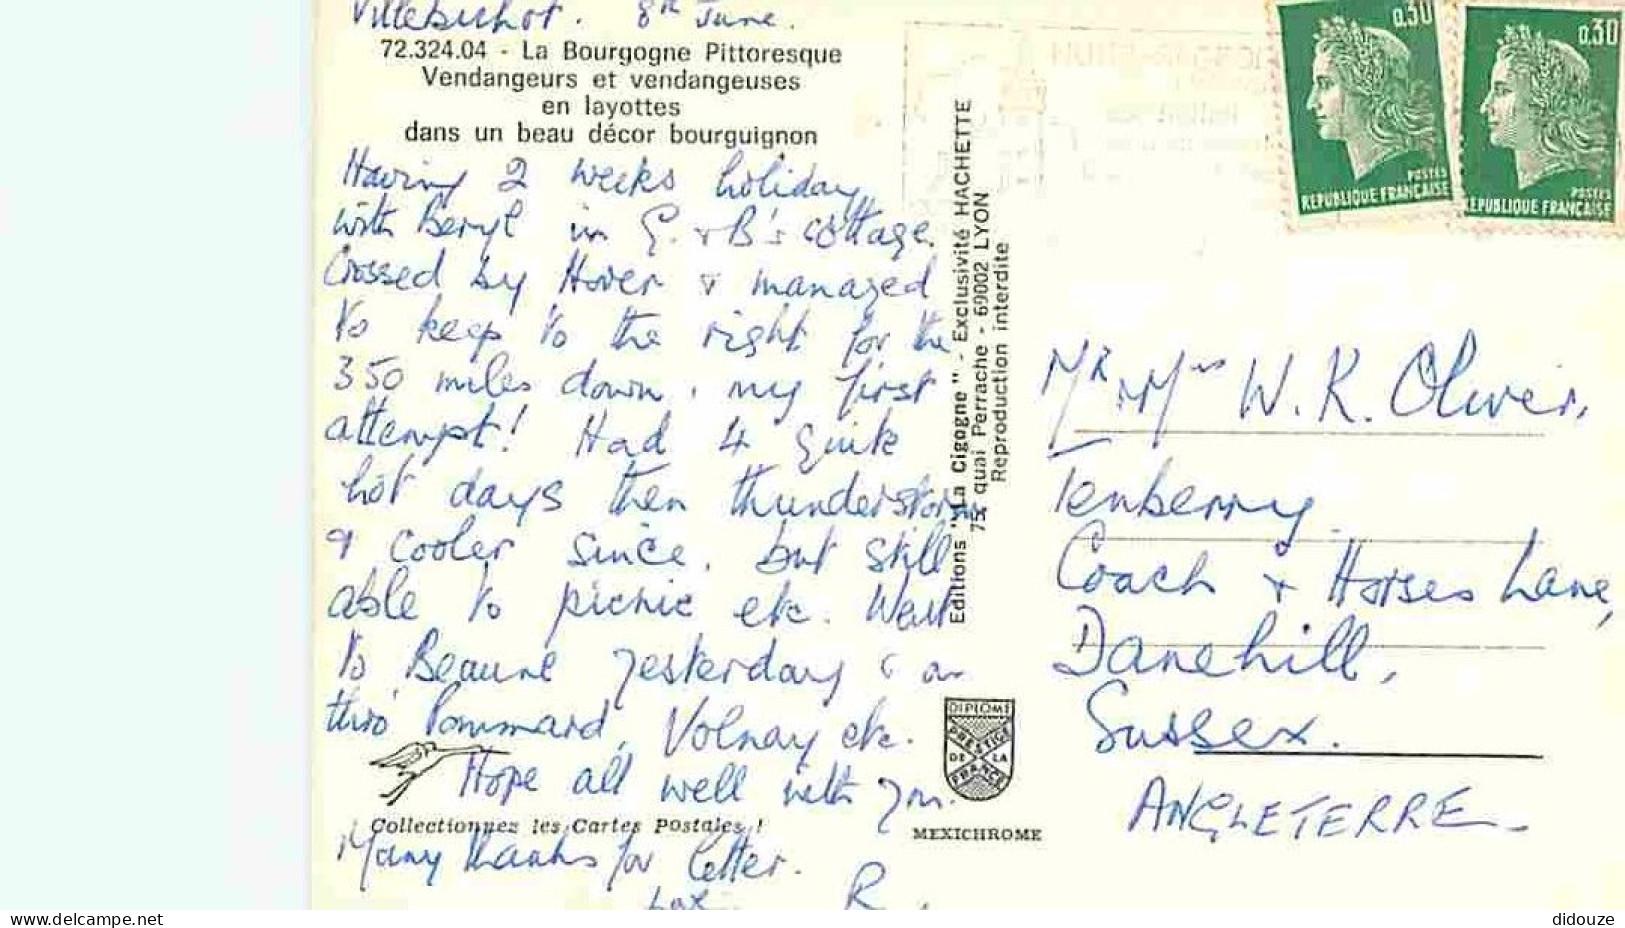 Villebichot. 8th June.
72.324.04 - La Bourgogne Pittoresque
Vendangeurs et vendangeuses
en layottes
dans un beau décor bourguignon
Having 2 weeks holiday
with Beryl in G. & B's cottage.
Crossed by Hover & managed
to keep to the right for the
350 miles down, my first
attempt! Had 4 quite
hot days then thunderstorm
& cooler since, but still
able to picnic etc. Went
to Beaune yesterday
thro' Pommard, Volnay etc.
Hope all well with you.
Collectionnez les Cartes Postales !
Many thanks for letter.
R.
Editions "La Cigogne" - Exclusivité HACHETTE
75, quai Perrache - 69002 LYON
Reproduction interdite
DIPLOME
PRESTIGE
DE LA
FRANCE
MEXICHROME
0,30
POSTES
REPUBLIQUE FRANÇAISE
0,30
POSTES
REPUBLIQUE FRANÇAISE
Mr & Mrs W. R. Oliver,
Tenberry
Coach & Horses Lane,
Danehill,
Sussex.
ANGLETERRE
www.delcampe.net
didouze